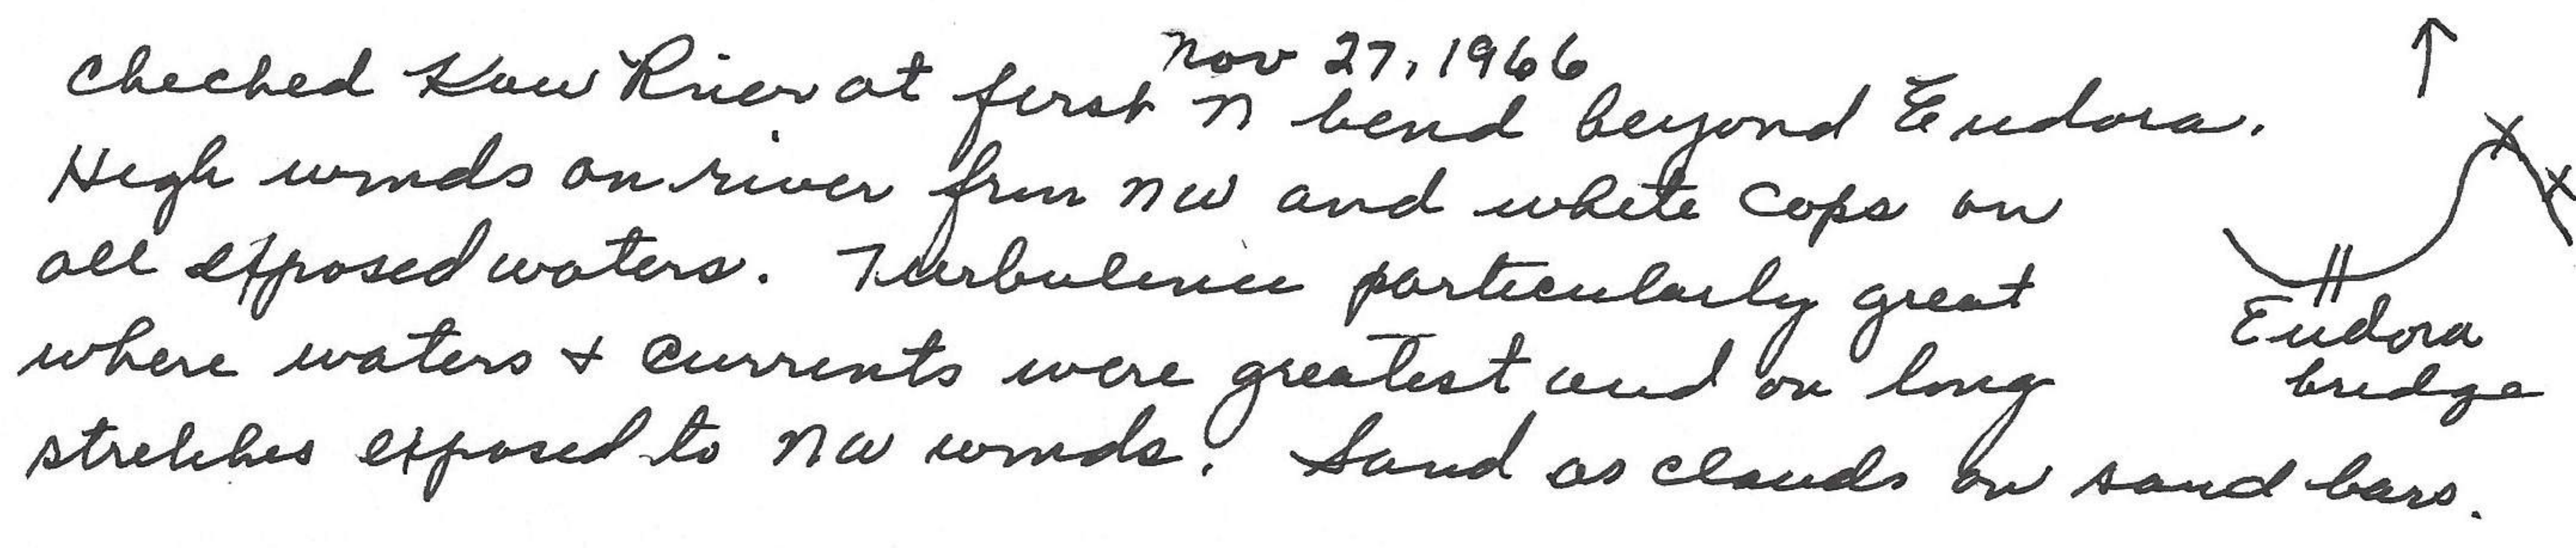 Nov 27, 1966
Checked Kaw River at first N bend beyond Eudora.
High winds on river from NW and white caps on
all exposed waters. Turbulence particularly great
where waters + currents were greatest and on long
stretches exposed to NW winds. Sand as clouds on sand bars.
Eudora
bridge